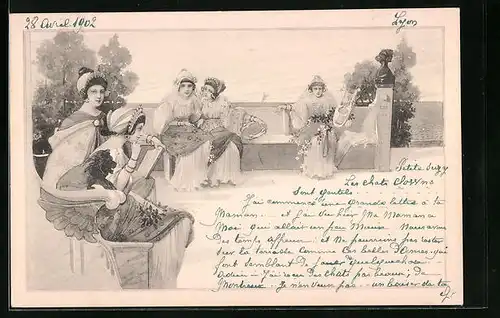 28 Avril 1902
Lyon
Petite Suzy
Les Chats Clowns
sont gentils
J'ai commencé une grande lettre à ta
Maman... et j'ai vu hier Ma Maman a
Moi qui allait un peu Mieux. Nous avons
Des temps affreux... et ne pourrions pas rester
sur la comme Ces belles Dames qui
font semblant de jouer quelque chose
Adieu - J'ai reçu Des Chats par de
Monsieur. Je n'en veux pas un baiser de ta